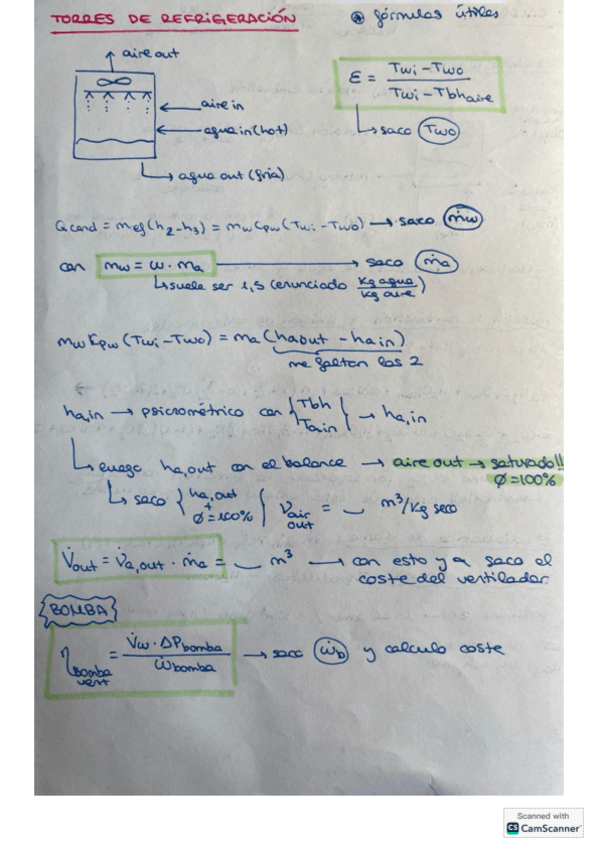 TORRES DE REFRIGERACIÓN ⊛ fórmulas útiles
aire out
aire in
agua in (hot)
agua out (fría)
ε = (Twi - Two) / (Twi - Tbh aire)
↳ saco Two
Qcond = mef (h2 - h3) = mw Cpw (Twi - Two) → saco ṁw
con mw = ω · ma → saco ṁa
↳ suele ser 1,5 (enunciado Kg agua / Kg aire)
mw Cpw (Twi - Two) = ma (ha out - ha in)
me faltan las 2
ha,in → psicrométrico con { Tbh Ta in } → ha,in
↳ luego ha,out con el balance → aire out → saturado!!
Ø = 100%
↳ saco { ha,out + Ø = 100% { Vair out = _ m³/Kg seco
V̇out = V̇a,out · ṁa = _ m³ → con esto ya saco el
coste del ventilador
BOMBA
η Bomba vent = V̇w · ΔP bomba / Ẇ bomba → saco ẇb y calculo coste
Scanned with
CS CamScanner